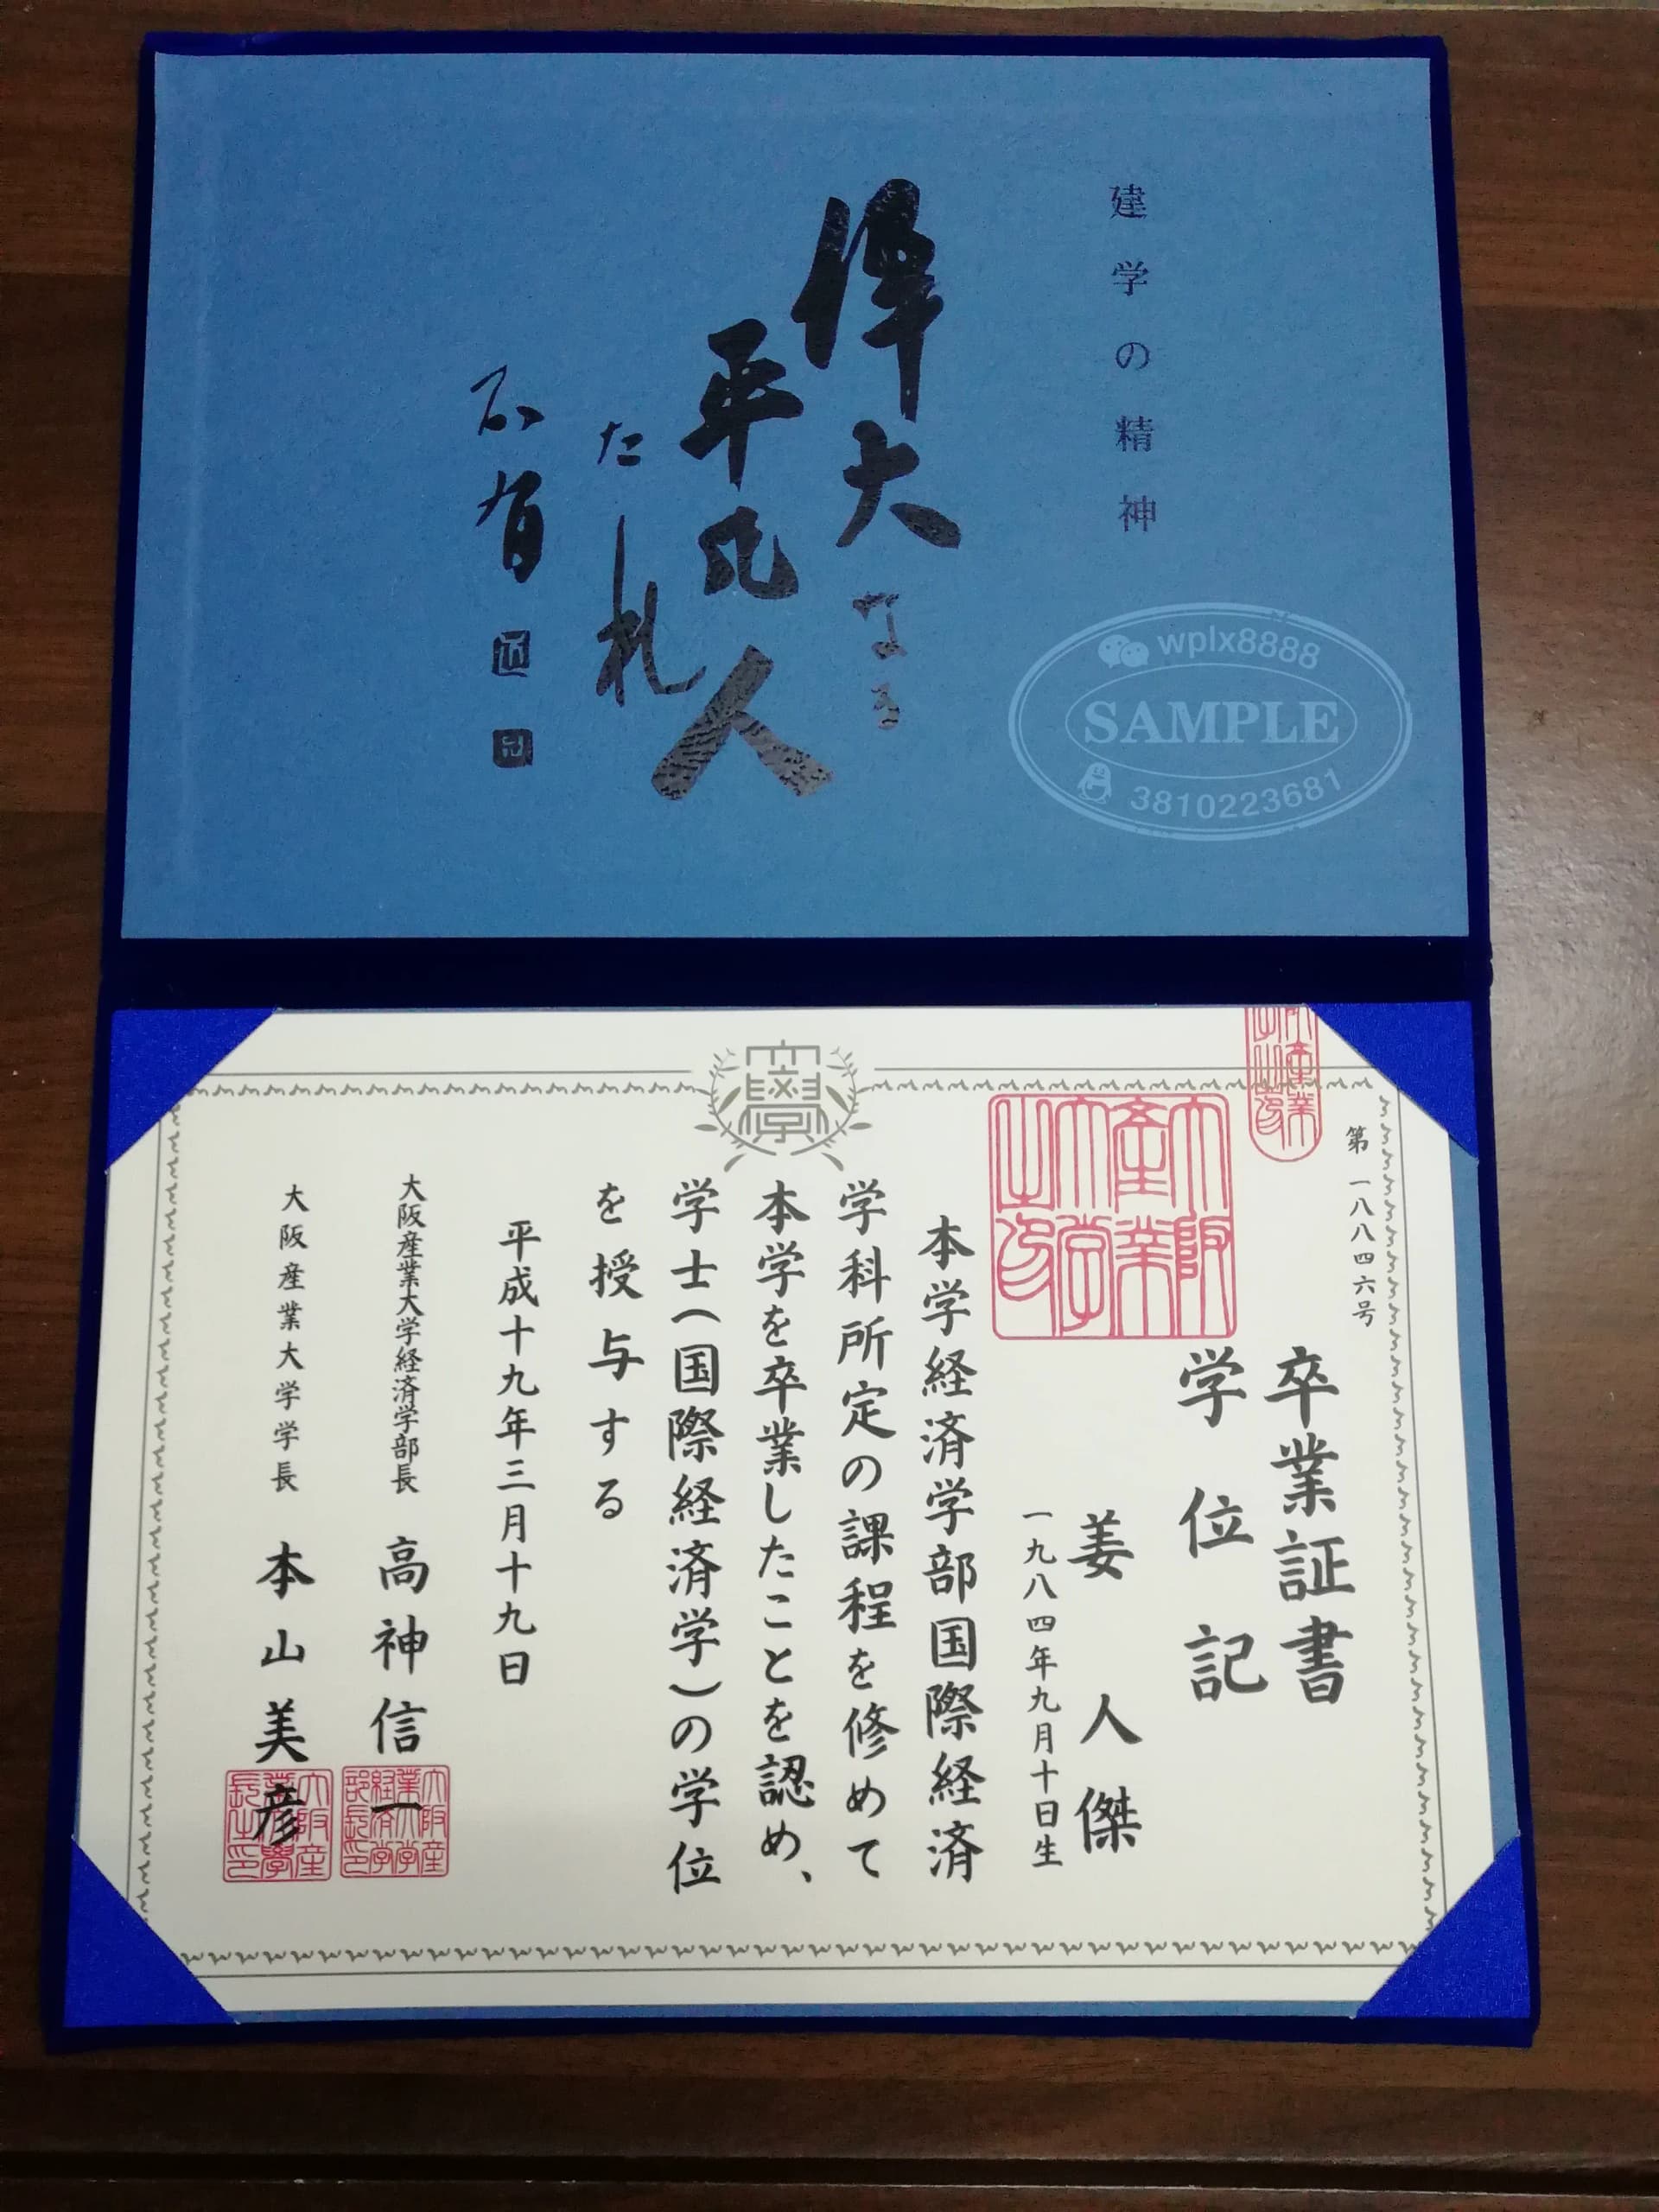 建学の精神
偉大なる
平凡人
たれ
wplx8888
SAMPLE
3810223681
第一八八四六号
卒業証書
学位記
大阪産業大学之印
姜人傑
一九八四年九月十日生
本学経済学部国際経済
学科所定の課程を修めて
本学を卒業したことを認め、
学士(国際経済学)の学位
を授与する
平成十九年三月十九日
大阪産業大学経済学部長 高神信一
大阪産業大学学長 本山美彦